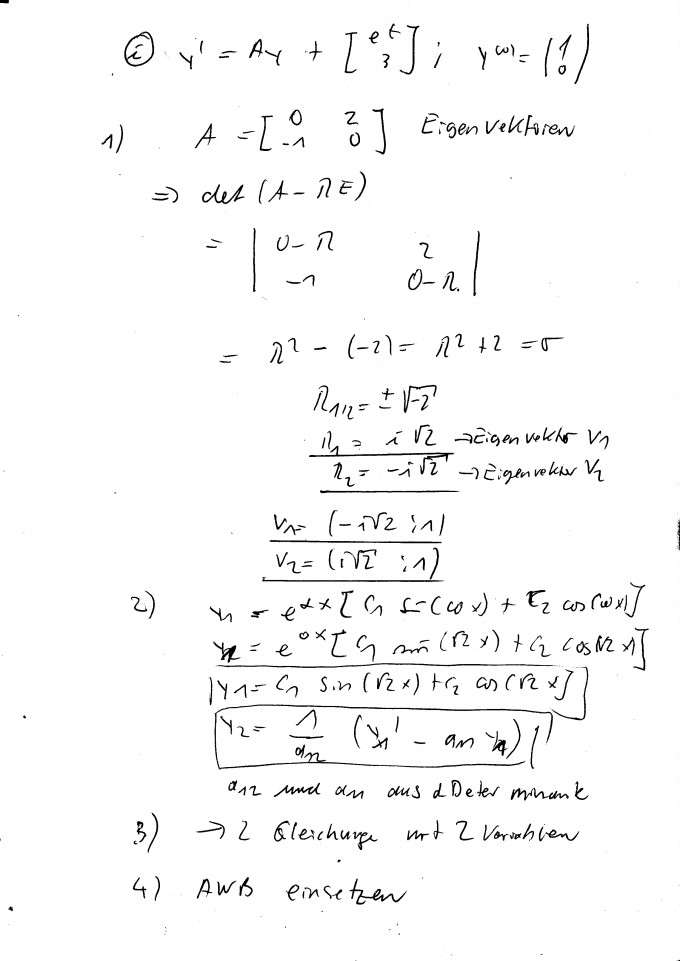 ⓔ y' = Ay + [e^t 3] ; y(0) = (1 0)
1) A = [0 2 -1 0] Eigenvektoren
=> det (A - λE)
= | 0-λ 2
-1 0-λ |
= λ² - (-2) = λ² + 2 = 0
λ1/2 = ± √-2
λ1 = i √2 → Eigenvektor V1
λ2 = -i √2 → Eigenvektor V2
V1 = (-i√2 ; 1)
V2 = (i√2 ; 1)
2) = e^αx [C1 sin(ωx) + C2 cos(ωx)]
= e^0x [C1 sin (√2 x) + C2 cos √2 x]
y1 = C1 sin (√2 x) + C2 cos (√2 x)
y2 = 1/a12 (y1' - a11 y1)
a12 und a11 aus d Determinante
3) → 2 Gleichunge mit 2 Variablen
4) AWB einsetzen